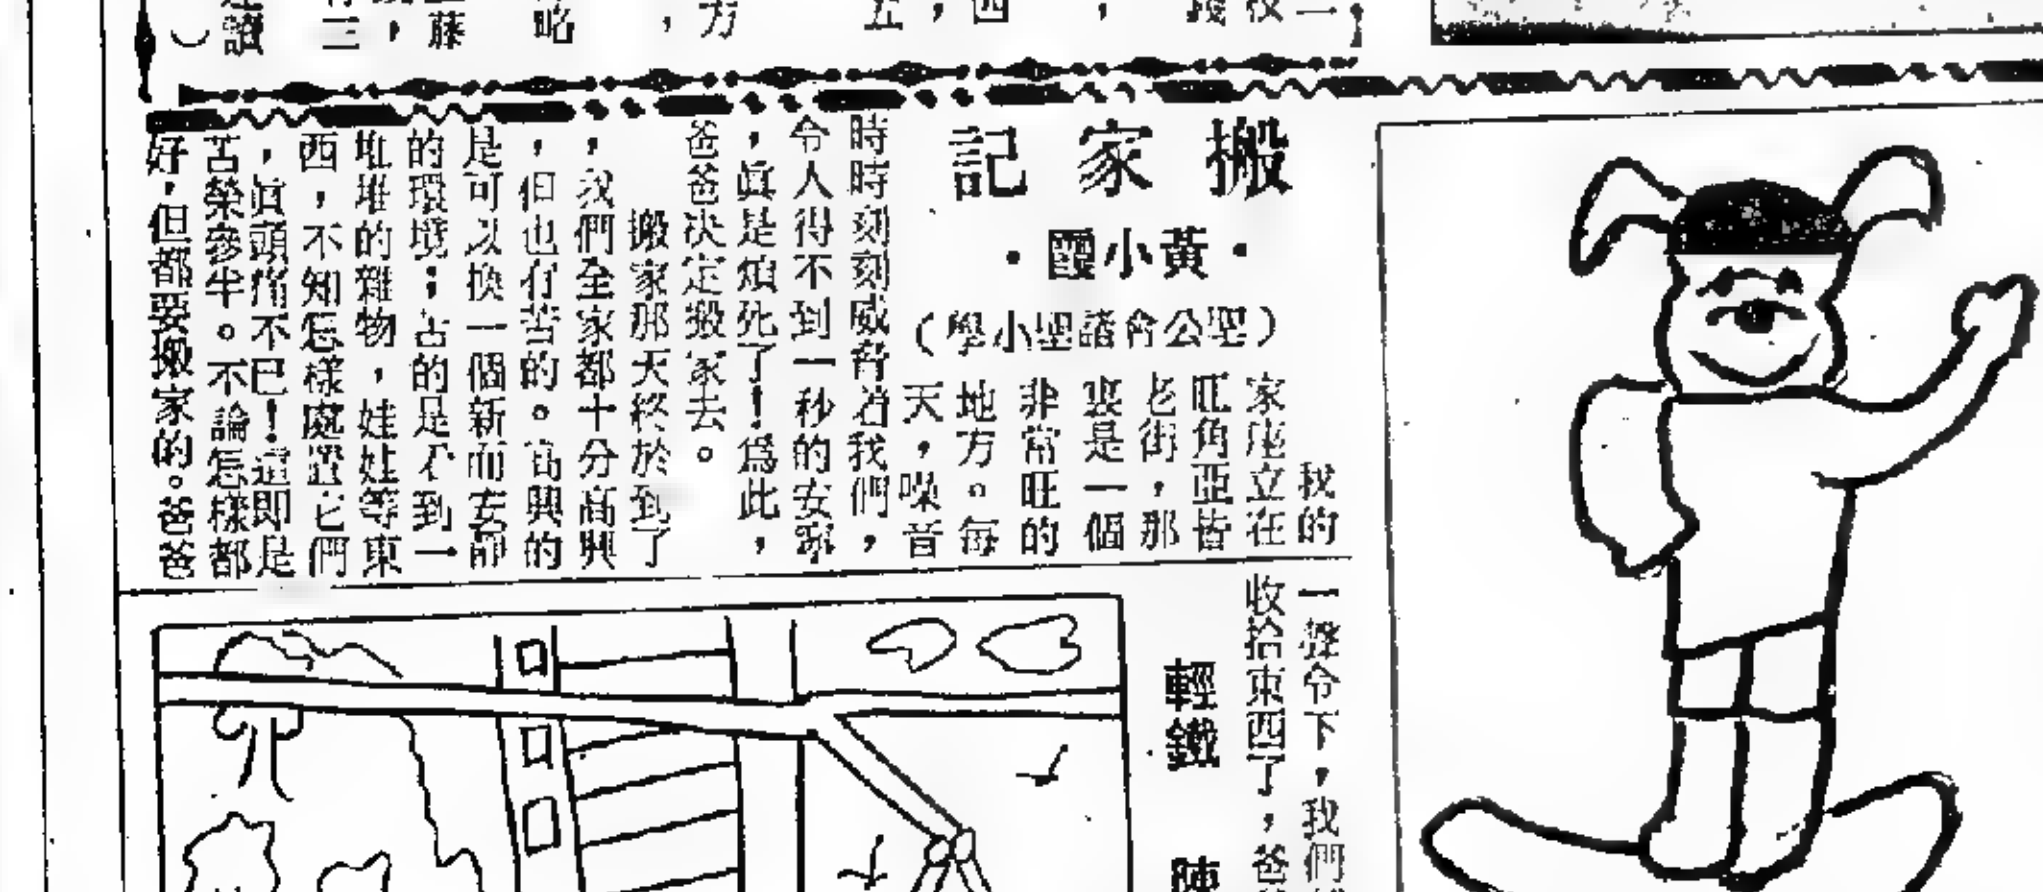 搬家記
·黃小霞·
（聖公會諸聖小學）
我的
家座立在
旺角亞皆
老街，那
裏是一個
非常旺的
地方。每
天，噪音
時時刻刻威脅着我們，
令人得不到一秒的安寧
，眞是煩死了！爲此，
爸爸决定搬家去。
搬家那天終於到了
，我們全家都十分高興
，但也有苦的。高興的
是可以換一個新而安靜
的環境；苦的是不到一
堆堆的雜物，娃娃等東
西，不知怎樣處置它們
，眞頭痛不已！這即是
苦榮參半。不論怎樣都
好，但都要搬家的。爸爸
一聲令下，我們
收拾東西了，爸
輕鐵
陳